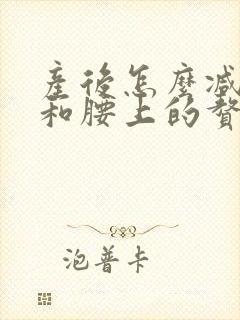 產後怎麼減
和腰上的贅
泡普卡